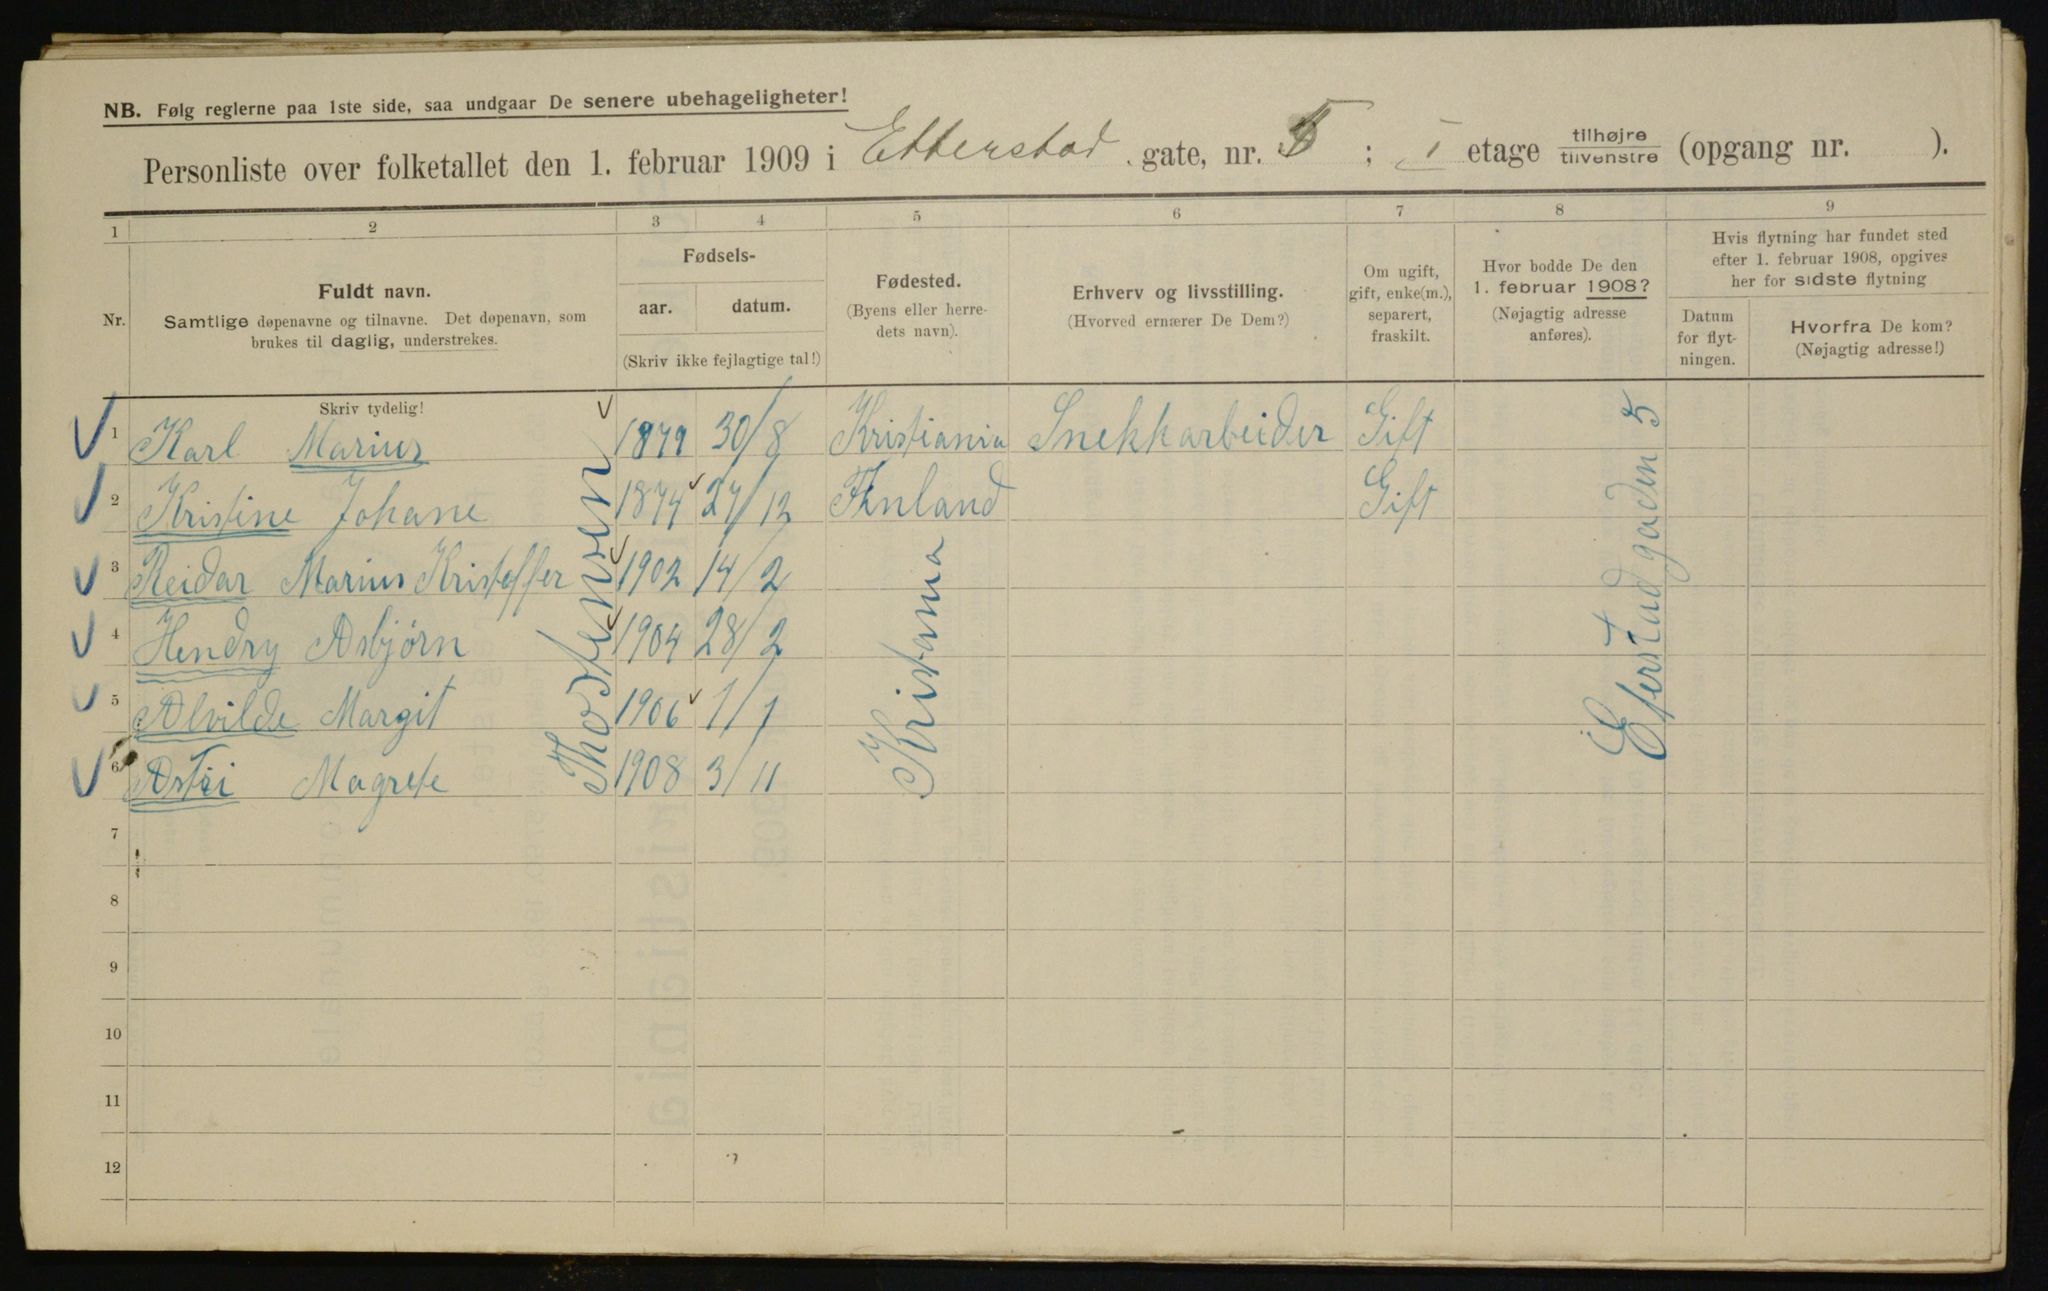 NB. Følg reglerne paa 1ste side, saa undgaar De senere ubehageligheter!
Personliste over folketallet den 1. februar 1909 i Etterstad gate, nr. 5 ; I etage tilhøjre/tilvenstre (opgang nr. ).
1 2 3 4 5 6 7 8 9
Nr.
Fuldt navn.
Samtlige døpenavne og tilnavne. Det døpenavn, som
brukes til daglig, understrekes.
Fødsels-
aar. datum.
(Skriv ikke fejlagtige tal!)
Fødested.
(Byens eller herre-
dets navn).
Erhverv og livsstilling.
(Hvorved ernærer De Dem?)
Om ugift,
gift, enke(m.),
separert,
fraskilt.
Hvor bodde De den
1. februar 1908?
(Nøjagtig adresse
anføres).
Hvis flytning har fundet sted
efter 1. februar 1908, opgives
her for sidste flytning
Datum
for flyt-
ningen.
Hvorfra De kom?
(Nøjagtig adresse!)
Skriv tydelig!
1 Karl Marius 1879 30/8 Kristiania Snekkarbeider Gift
2 Kristine Johane 1874 27/12 Finland Gift
3 Reidar Marius Kristoffer 1902 14/2
4 Hendry Asbjørn 1904 28/2
5 Alvilde Margit 1906 1/1
6 Astri Magrete 1908 3/11
Thostensen
Kristiana
Eferstad gaden 5
7
8
9
10
11
12